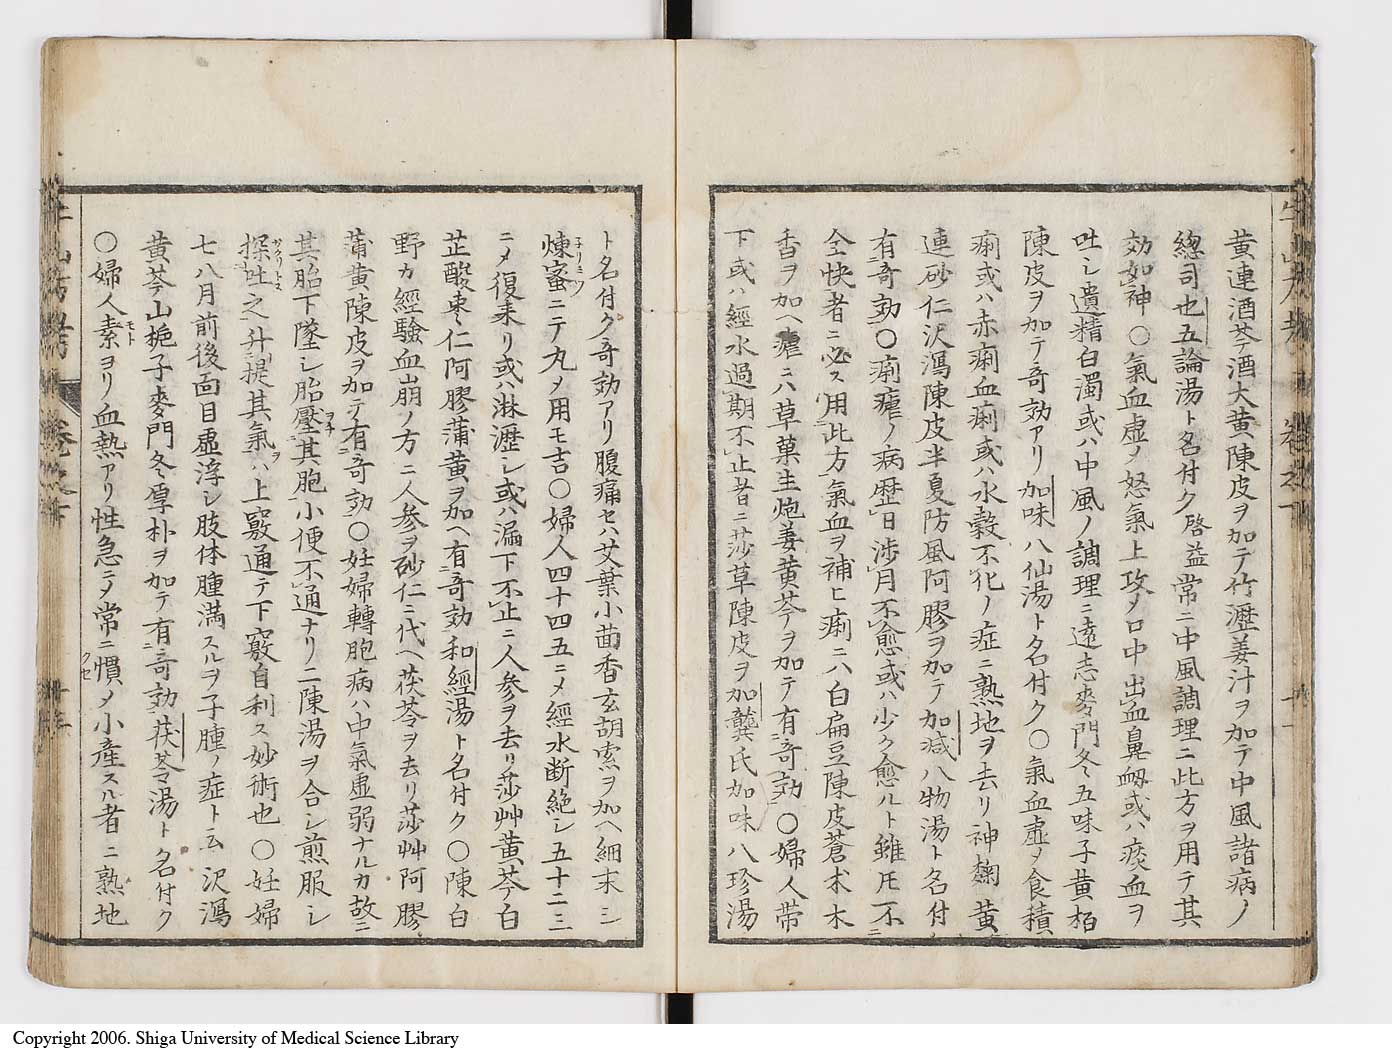 黄連酒芩酒大黄陳皮ヲ加テ竹瀝姜汁ヲ加テ中風諸病ノ
總司也五論湯ト名付ク啓益常ニ中風調理ニ此方ヲ用テ其
効如神○氣血虚ノ怒氣上攻メ口中出血鼻衂或ハ痰血ヲ
吐シ遺精白濁或ハ中風ノ調理ニ遠志麥門冬五味子黄栢
陳皮ヲ加テ奇効アリ加味八仙湯ト名付ク○氣血虚メ食積
痢或ハ赤痢血痢或ハ水穀不化ノ症ニ熟地ヲ去リ神麹黄
連砂仁沢瀉陳皮半夏防風阿膠ヲ加テ加减八物湯ト名付
有奇効○痢瘧ノ病歴日渉月不愈或ハ少ク愈ルト雖𪜈不
全快者ニ必ス用此方氣血ヲ補ヒ痢ニハ白扁豆陳皮蒼朮木
香ヲ加ヘ瘧ニハ草菓生炮姜黄芩ヲ加テ有奇効○婦人帯
下或ハ經水過期不止者ニ莎草陳皮ヲ加龔氏加味八珍湯
ト名付ク奇効アリ腹痛セハ艾葉小茴香玄胡索ヲ加ヘ細末シ
煉蜜ニテ丸メ用モ吉○婦人四十四五ニメ經水断絶シ五十二三
ニメ復来リ或ハ淋瀝シ或ハ漏下不止ニ人参ヲ去リ莎艸黄芩白
芷酸枣仁阿膠蒲黄ヲ加ヘ有奇効和經湯ト名付ク○陳白
野カ經驗血崩ノ方ニ人参ヲ砂仁ニ代ヘ茯苓ヲ去リ莎艸阿膠
蒲黄陳皮ヲ加テ有奇効○妊婦轉胞病ハ中氣虚弱ナルカ故ニ
其胎下墜シ胎壓其胞小便不通ナリ二陳湯ヲ合シ煎服シ
探吐之升提其氣ハ上竅通テ下竅自利ス妙術也○妊婦
七八月前後面目虚浮シ肢体腫満スルヲ子腫ノ症ト云沢瀉
黄芩山梔子麥門冬厚朴ヲ加テ有奇効茯苓湯ト名付ク
○婦人素ヨリ血熱アリ性急ニメ常ニ慣メ小産スル者ニ熟地